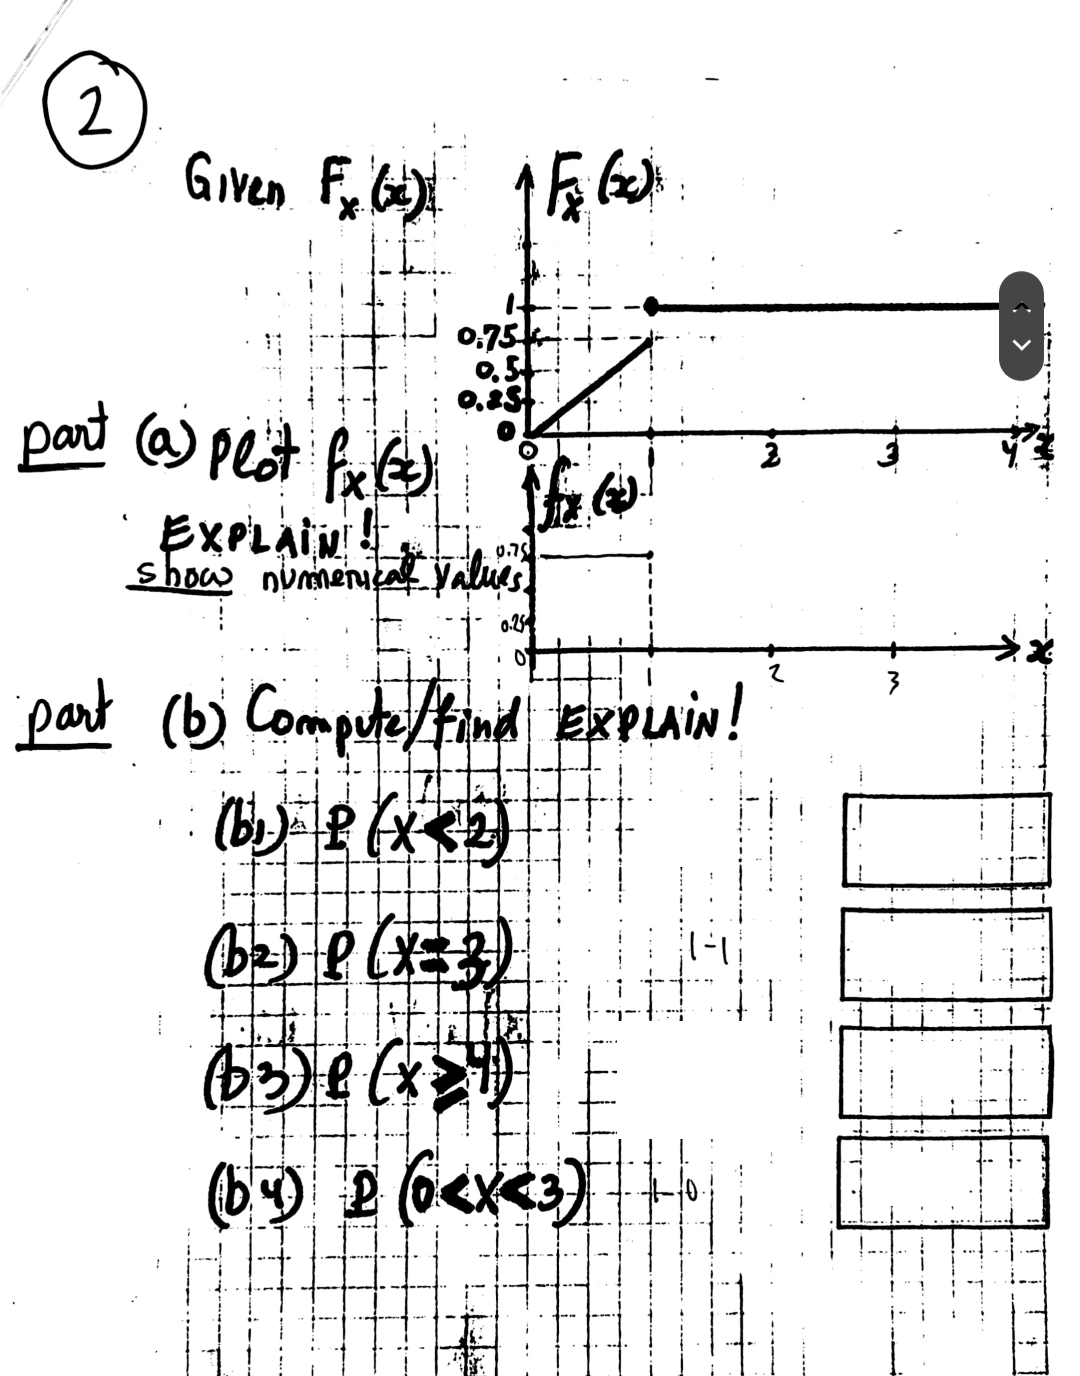 2
Given F_X(x)
F_X(x)
1
0.75
0.5
0.25
0
0 2 3 4 x
part (a) Plot f_X(x)
f_X(x)
EXPLAIN!
show numerical values
0.75
0.25
0
2 3 x
part (b) Compute/find EXPLAIN!
(b1) P(X<2)
(b2) P(X=3) 1-1
(b3) P(X≥4)
(b4) P(0<X<3) 1-0